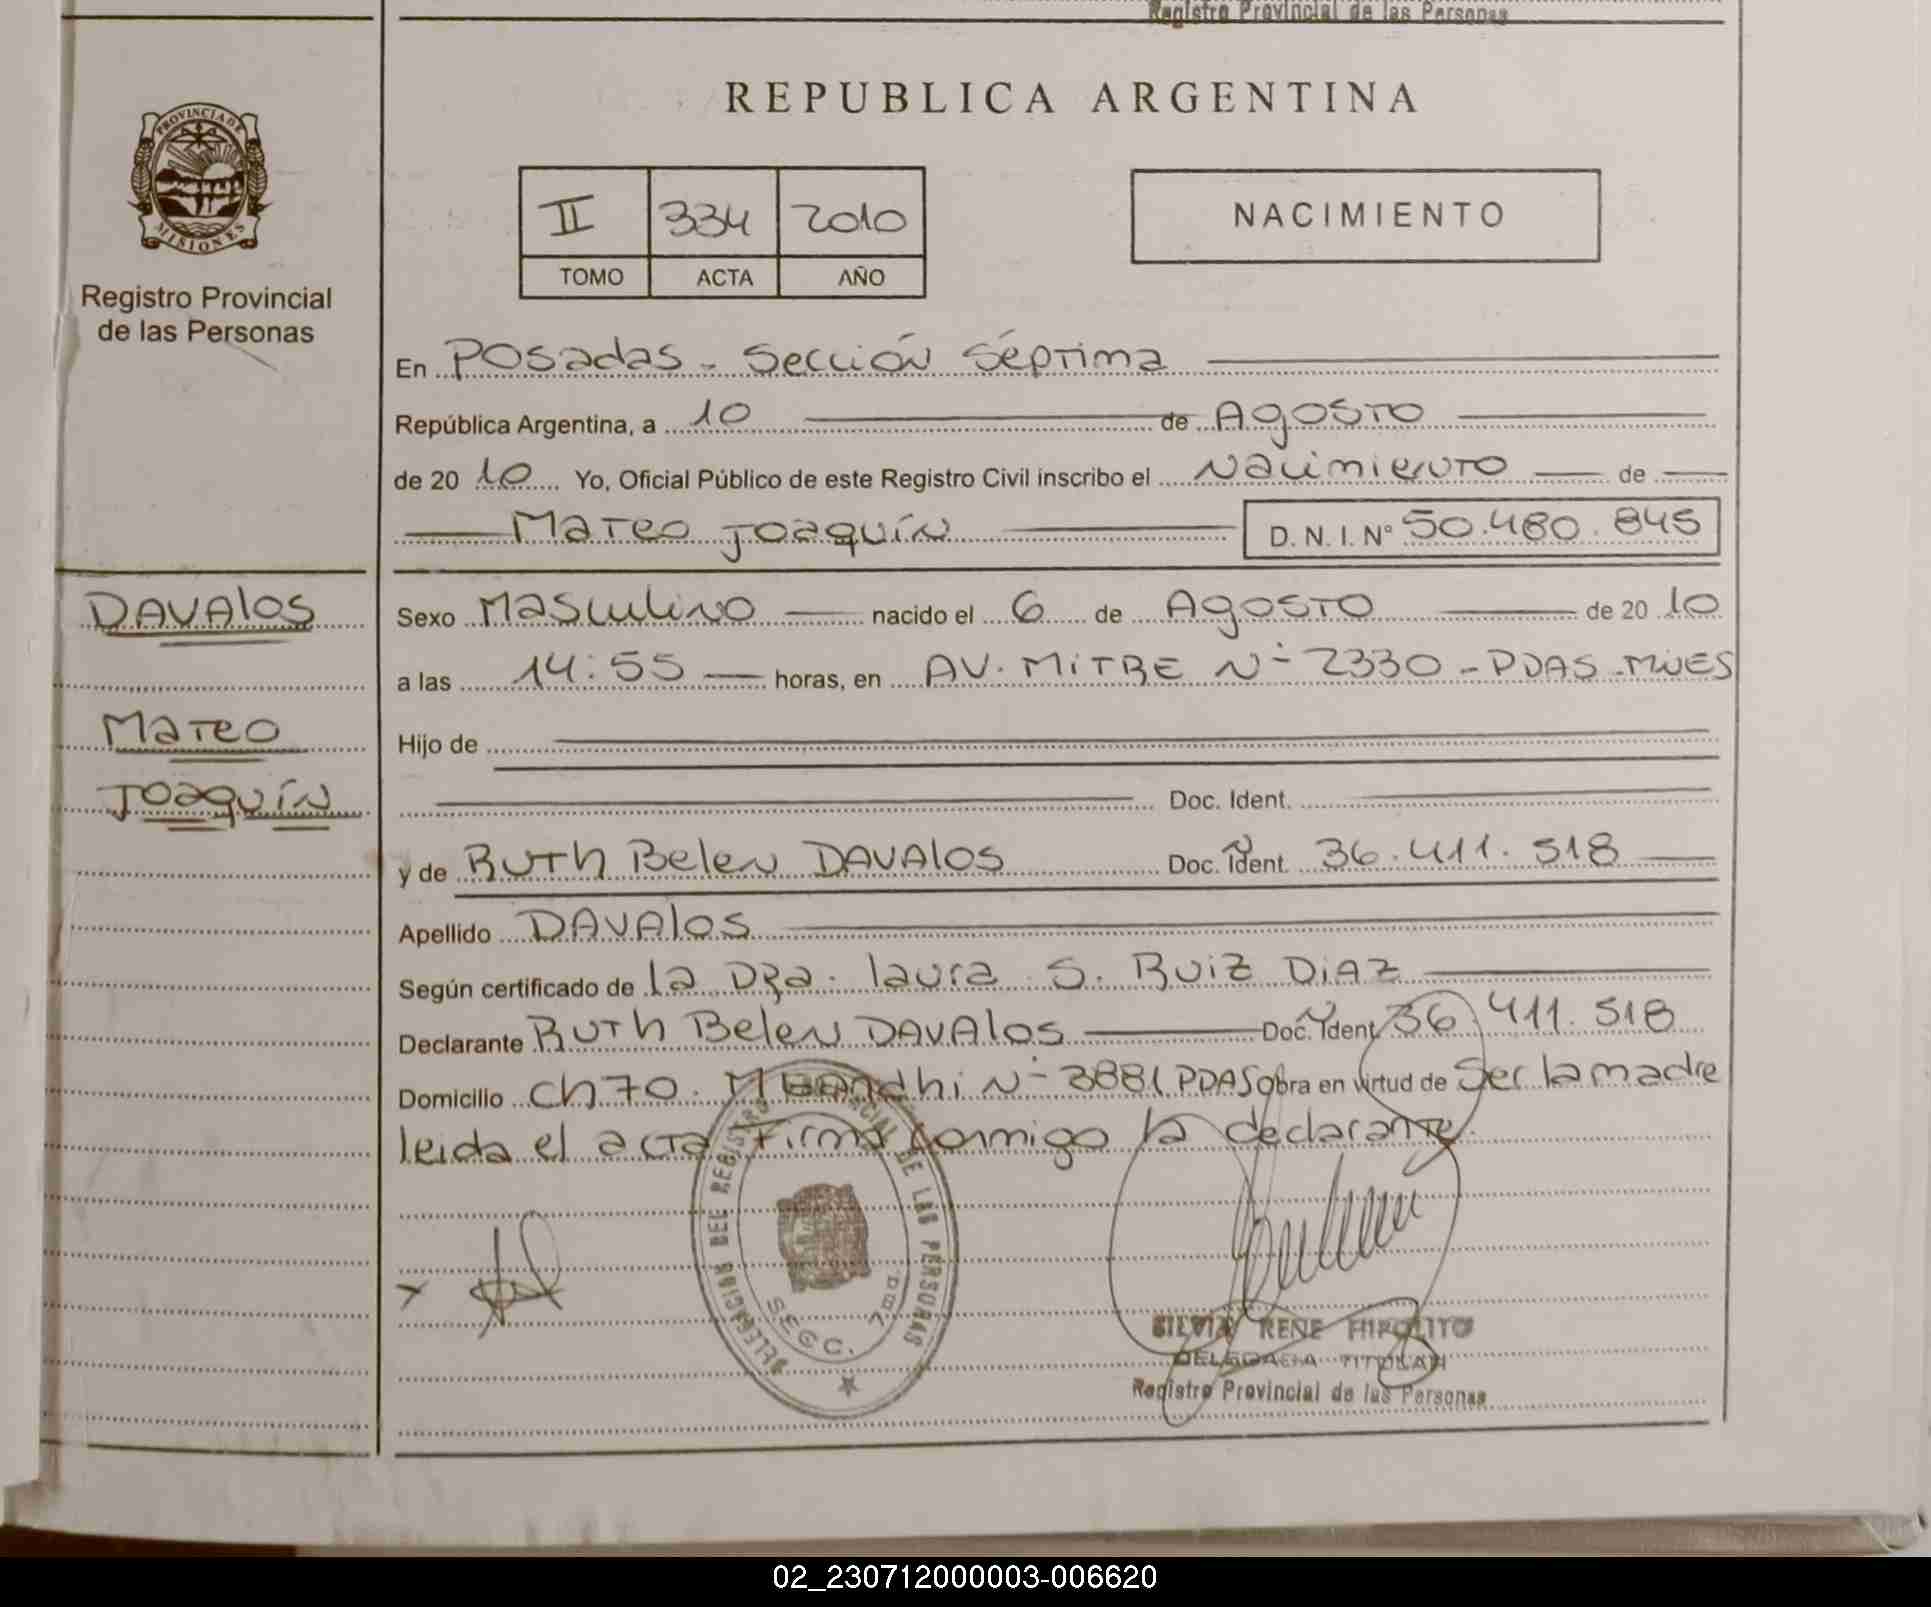 Registro Provincial de las Personas
REPUBLICA ARGENTINA
PROVINCIA DE
MISIONES
Registro Provincial
de las Personas
II 334 2010
TOMO ACTA AÑO
NACIMIENTO
En Posadas - Sección Séptima
República Argentina, a 10 de Agosto
de 20 10 Yo, Oficial Público de este Registro Civil inscribo el Nacimiento de
Mateo Joaquín D. N. I. Nº 50.480.845
DAVAlos
Mateo
Joaquín
Sexo Masculino nacido el 6 de Agosto de 20 10
a las 14:55 horas, en AV. MITRE Nº 2330 - PDAS - MNES
Hijo de
Doc. Ident.
y de Ruth Belen DAVAlos Doc. Ident. 36.411.518
Apellido DAVAlos
Según certificado de la Dra. laura S. Ruiz Diaz
Declarante Ruth Belen DAVAlos Doc. Ident. 36.411.518
Domicilio Ch 70. M Gandhi Nº 3881 PDAS obra en virtud de Ser la madre
leida el acta firma conmigo la declarante.
DELEGACION DEL REGISTRO PROVINCIAL DE LAS PERSONAS
SECC. 7ma.
SILVIA RENE HIPOLITO
DELEGADA TITULAR
Registro Provincial de las Personas
02_230712000003-006620